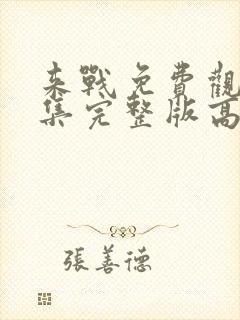 来戰免費觀
集完整版高
張善德